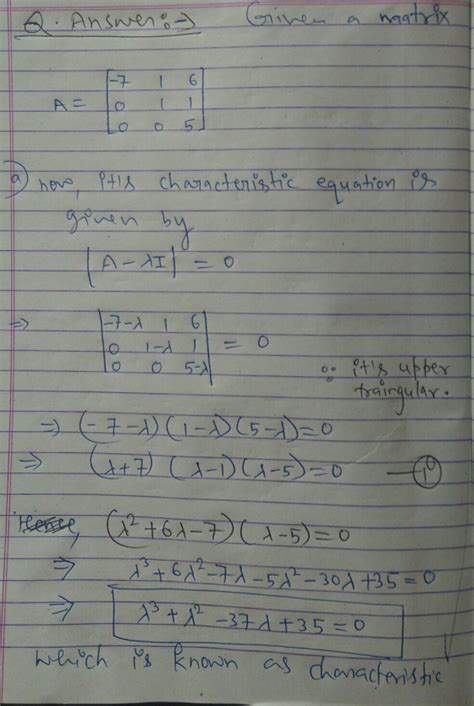 Q. Answer:→ Given a matrix
A = [-7 1 6
0 1 1
0 0 5]
a) now, it's characteristic equation is
given by
|A - λI| = 0
⇒ |-7-λ 1 6
0 1-λ 1
0 0 5-λ| = 0
∵ it's upper
traingular.
⇒ (-7-λ)(1-λ)(5-λ)=0
⇒ (λ+7) (λ-1)(λ-5)=0 —①
Hence, (λ²+6λ-7)(λ-5)=0
⇒ λ³+6λ²-7λ-5λ²-30λ+35=0
⇒ λ³+λ²-37λ+35=0
which is known as characteristic